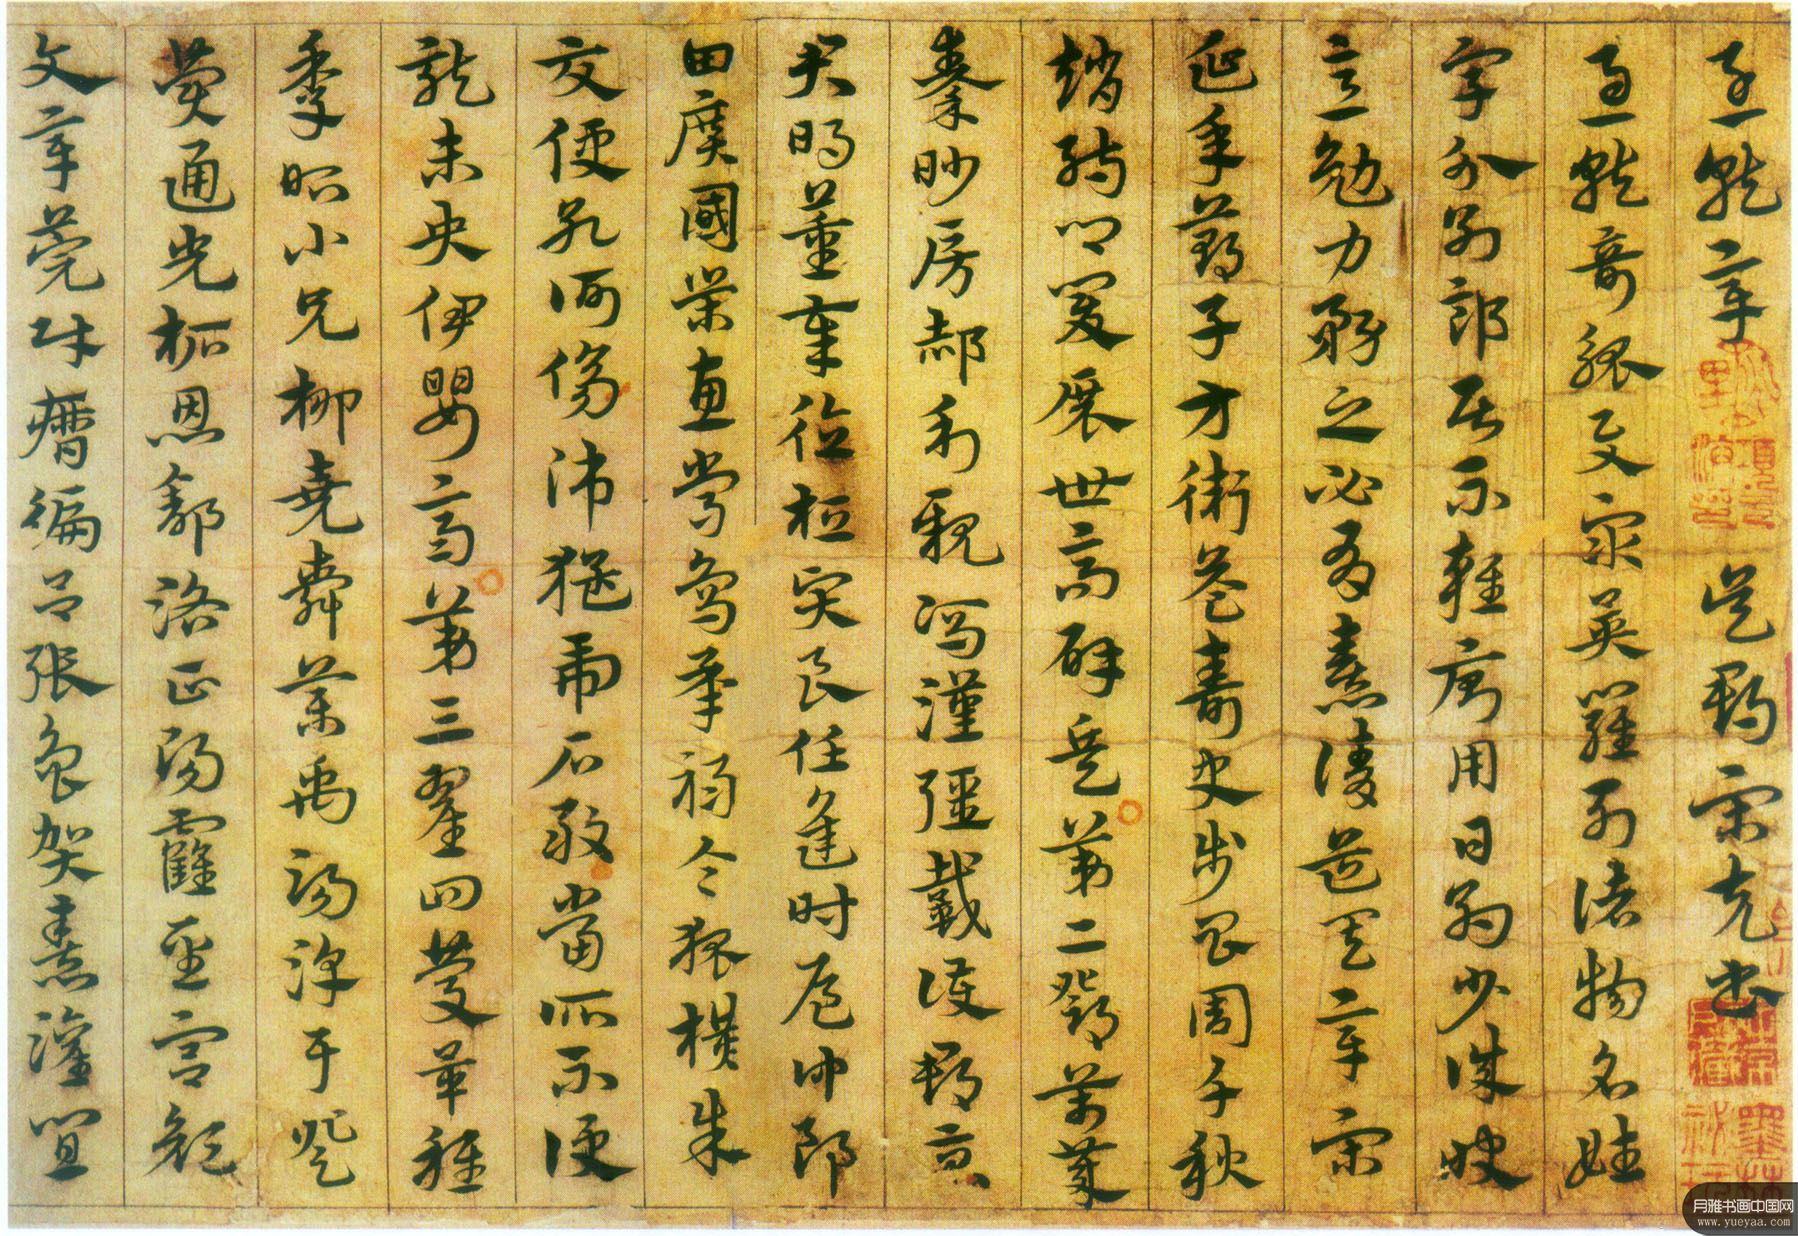 急就章 吳郡宋克書
急就奇觚與衆異羅列諸物名姓
字分別部居不雜廁用日約少誠快
意勉力務之必有憙請道其章宋
延年鄭子方衛益壽史步昌周千秋
趙孺卿爰展世高辟兵第二鄧萬歲
秦眇房郝利親馮漢彊戴護郡景
君明董奉德桓賢良任逢時侯仲郎
由廣國榮惠常烏承祿令狐橫朱
交便孔何傷師猛虎石敢當所不侵
龍未央伊嬰齊第三翟回慶畢稚
季昭小兄柳堯舜樂禹湯淳于登
費通光柘恩舒路正陽霍聖宮顏
文章莞財曆偏呂張魚賀熹灌宜
月雅书画中国网
www.yueyaa.com